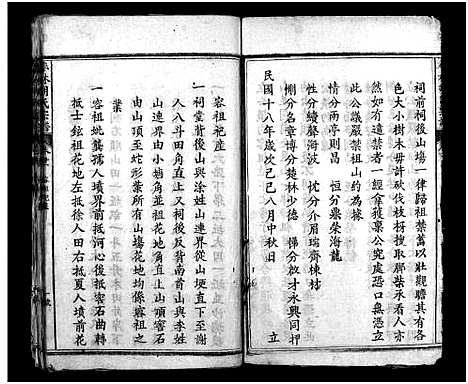 祠前祠後山場一律歸祖禁蓄以壯觀瞻其有各
色大小樹木毋許砍伐枝桠搜取腳柴承看人亦
然如有違禁者一經拿獲稟公究處恐口無憑立
此公議嚴禁祖山約為據
情分雨亭則昌　恒分鼎榮海龍
性分續聲海波　忱分介眉瑞齊棟材
惻分名章博分楚林少德　悌分啟才永興同
民國十八年歲次己巳八月中秋日　立
一容祖祀產
一祠堂背後山與涂姓山連界從山埂直下至謝
人八斗田角直上又祠後反背南首山與李姓
山連界由小墈角並祖花地直上山頂齊石
由山頂至蛇形葉所有山場花地均係容祖之
業
一容祖妣龔孺人墳界前抵河心後抵窖石曲轉
抵士鉉祖花地左抵徐人田右抵夏人墳前花